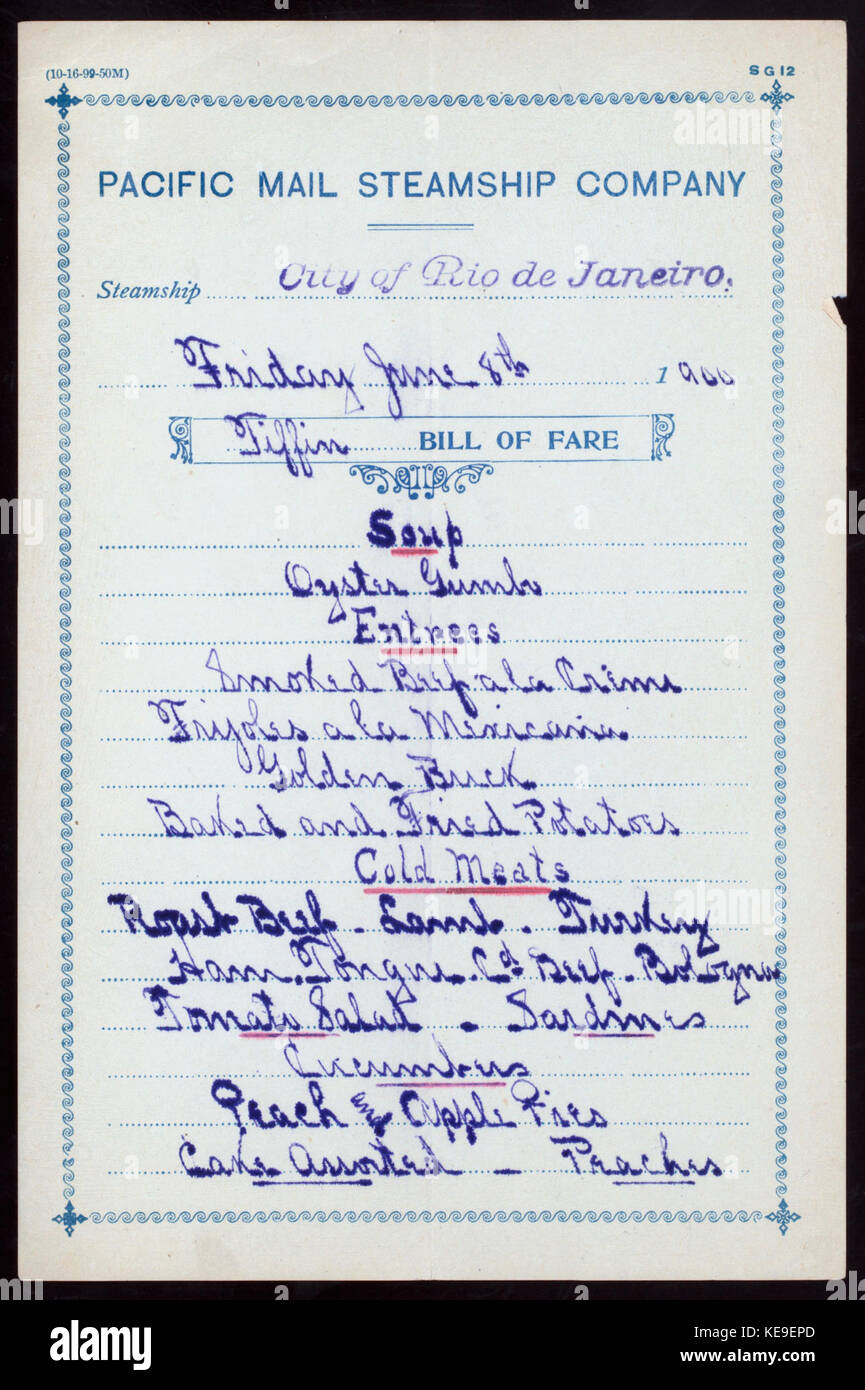 (10-16-99-50M) SG12
PACIFIC MAIL STEAMSHIP COMPANY
Steamship City of Rio de Janeiro.
Friday June 8th 1900
Tiffin BILL OF FARE
Soup
Oyster Gumbo
Entrees
Smoked Beef a la Crème
Frijoles a la Mexicana
Golden Buck
Baked and Fried Potatoes
Cold Meats
Roast Beef - Lamb - Turkey
Ham. Tongue. Cd Beef. Bologna
Tomato Salad - Sardines
Cucumbers
Peach and Apple Pies
Cake Assorted - Peaches
alamy
Image ID: KE9EPD
www.alamy.com